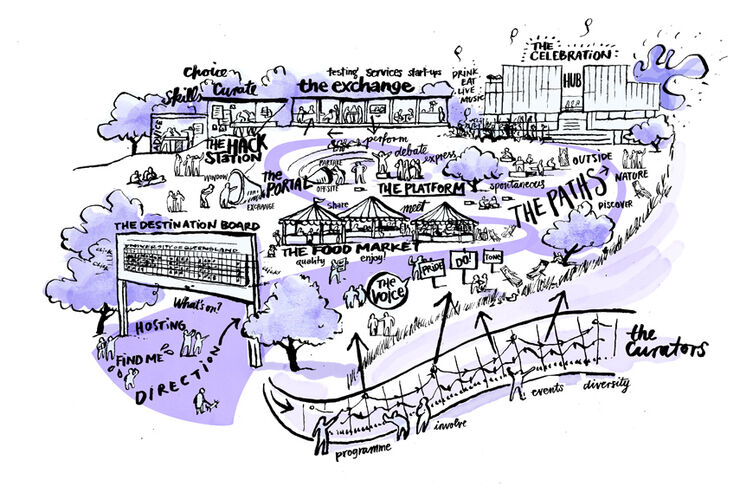 THE CELEBRATION
HUB
DRINK
EAT
LIVE
MUSIC
testing services start-ups
the exchange
choice
Curate
Skills
THE HACK STATION
perform
debate
express
WINDOW
THE PORTAL
EXCHANGE
PARTAKE
OFF-SITE
THE PLATFORM
spontaneous
OUTSIDE
NATURE
THE PATHS
DISCOVER
share
meet
THE FOOD MARKET
quality
enjoy!
THE DESTINATION BOARD
UNIVERSITY OF QUEENSLAND
What's on?
HOSTING
FIND ME
DIRECTION
THE VOICE
PRIDE
DO!
TONE
the Curators
events
diversity
involve
programme